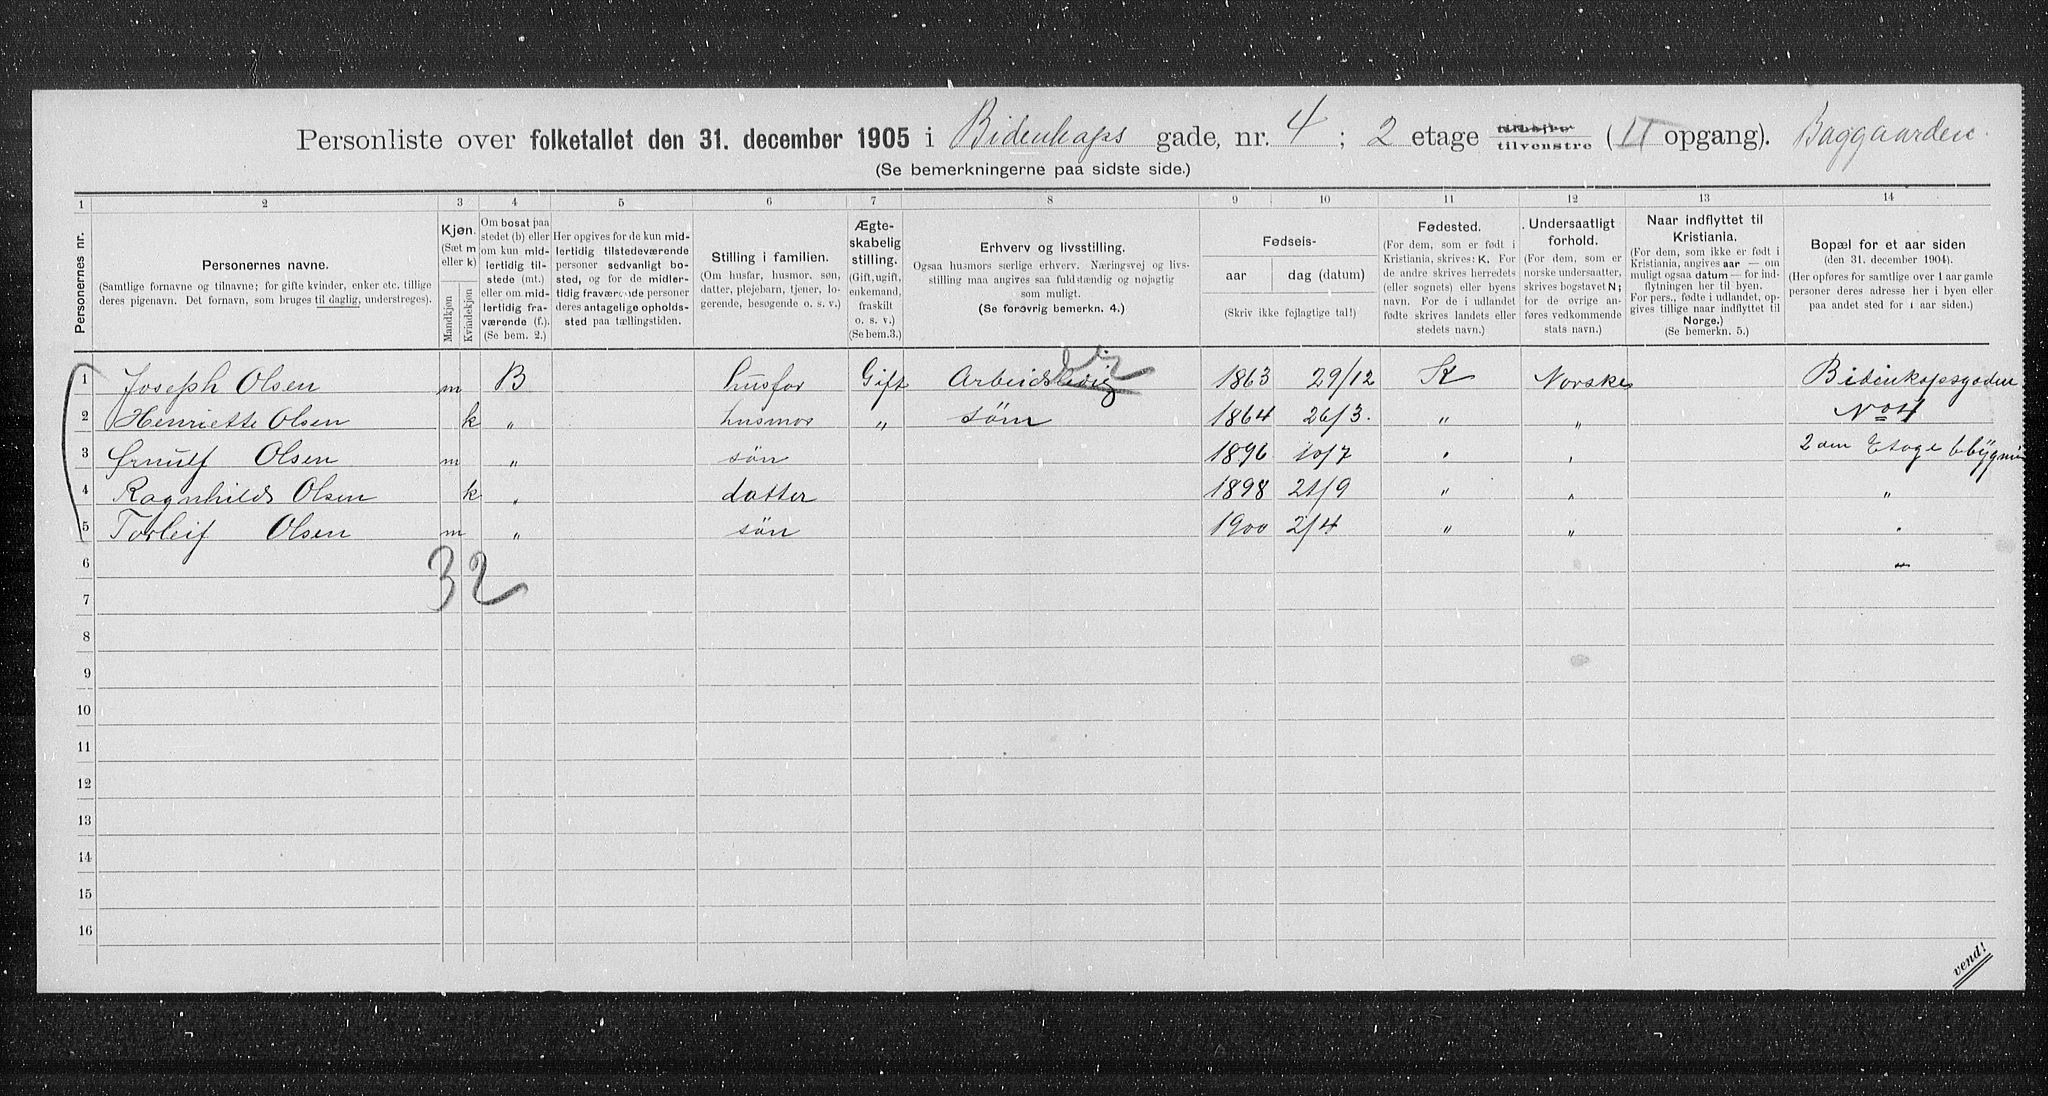 Personliste over folketallet den 31. december 1905 i Bidenkaps gade, nr. 4 ; 2 etage tilhøjre tilvenstre (II opgang). Baggaarden.
(Se bemerkningerne paa sidste side.)
1 2 3 4 5 6 7 8 9 10 11 12 13 14
Personernes nr.
Personernes navne.
(Samtlige fornavne og tilnavne; for gifte kvinder, enker etc. tillige
deres pigenavn. Det fornavn, som bruges til daglig, understreges).
Kjøn.
(Sæt m
eller k)
Mandkjøn
Kvindekjøn
Om bosat paa
stedet (b) eller
om kun mid-
lertidig til-
stede (mt.)
eller om mid-
lertidig fra-
værende (f.).
(Se bem. 2.)
Her opgives for de kun mid-
lertidig tilstedeværende
personer sedvanligt bo-
sted, og for de midler-
tidig fraværende personer
deres antagelige opholds-
sted paa tællingstiden.
Stilling i familien.
(Om husfar, husmor, søn,
datter, plejebarn, tjener, lo-
gerende, besøgende o. s. v.)
Ægte-
skabelig
stilling.
(Gift, ugift,
enkemand,
fraskilt
o. s. v.)
(Se bem. 3.)
Erhverv og livsstilling.
Ogsaa husmors særlige erhverv. Næringsvej og livs-
stilling maa angives saa fuldstændig og nøjagtig
som muligt.
(Se forøvrig bemerkn. 4.)
Fødseis-
aar dag (datum)
(Skriv ikke fejlagtige tal!)
Fødested.
(For dem, som er født i
Kristiania, skrives: K. For
de andre skrives herredets
(eller sognets) eller byens
navn. For de i udlandet
fødte skrives landets eller
stedets navn.)
Undersaatligt
forhold.
(For dem, som er
norske undersaatter,
skrives bogstavet N;
for de øvrige an-
føres vedkommende
stats navn.)
Naar indflyttet til
Kristiania.
(For dem, som ikke er født i
Kristiania, angives aar — om
muligt ogsaa datum — for ind-
flytningen her til byen.
For pers., fødte i udlandet, op-
gives tillige naar indflyttet til
Norge.)
(Se bemerkn. 5.)
Bopæl for et aar siden
(den 31. december 1904).
(Her opføres for samtlige over 1 aar gamle
personer deres adresse her i byen eller
paa andet sted for 1 aar siden.)
1 Joseph Olsen m B husfar Gift Arbeidsledig 1863 29/12 K Norske Bidenkapsgaden
2 Henriette Olsen k „ husmor „ söm 1864 26/3. „ „ No 4
3 Ørnulf Olsen m „ sön 1896 10/7 „ „ 2den Etage
4 Ragnhilds Olsen k „ datter 1898 21/9 „ „ „
5 Torleif Olsen m „ sön 1900 2/4 „ „ „
6 „
3 2
7
8
9
10
11
12
13
14
15
16
vend!